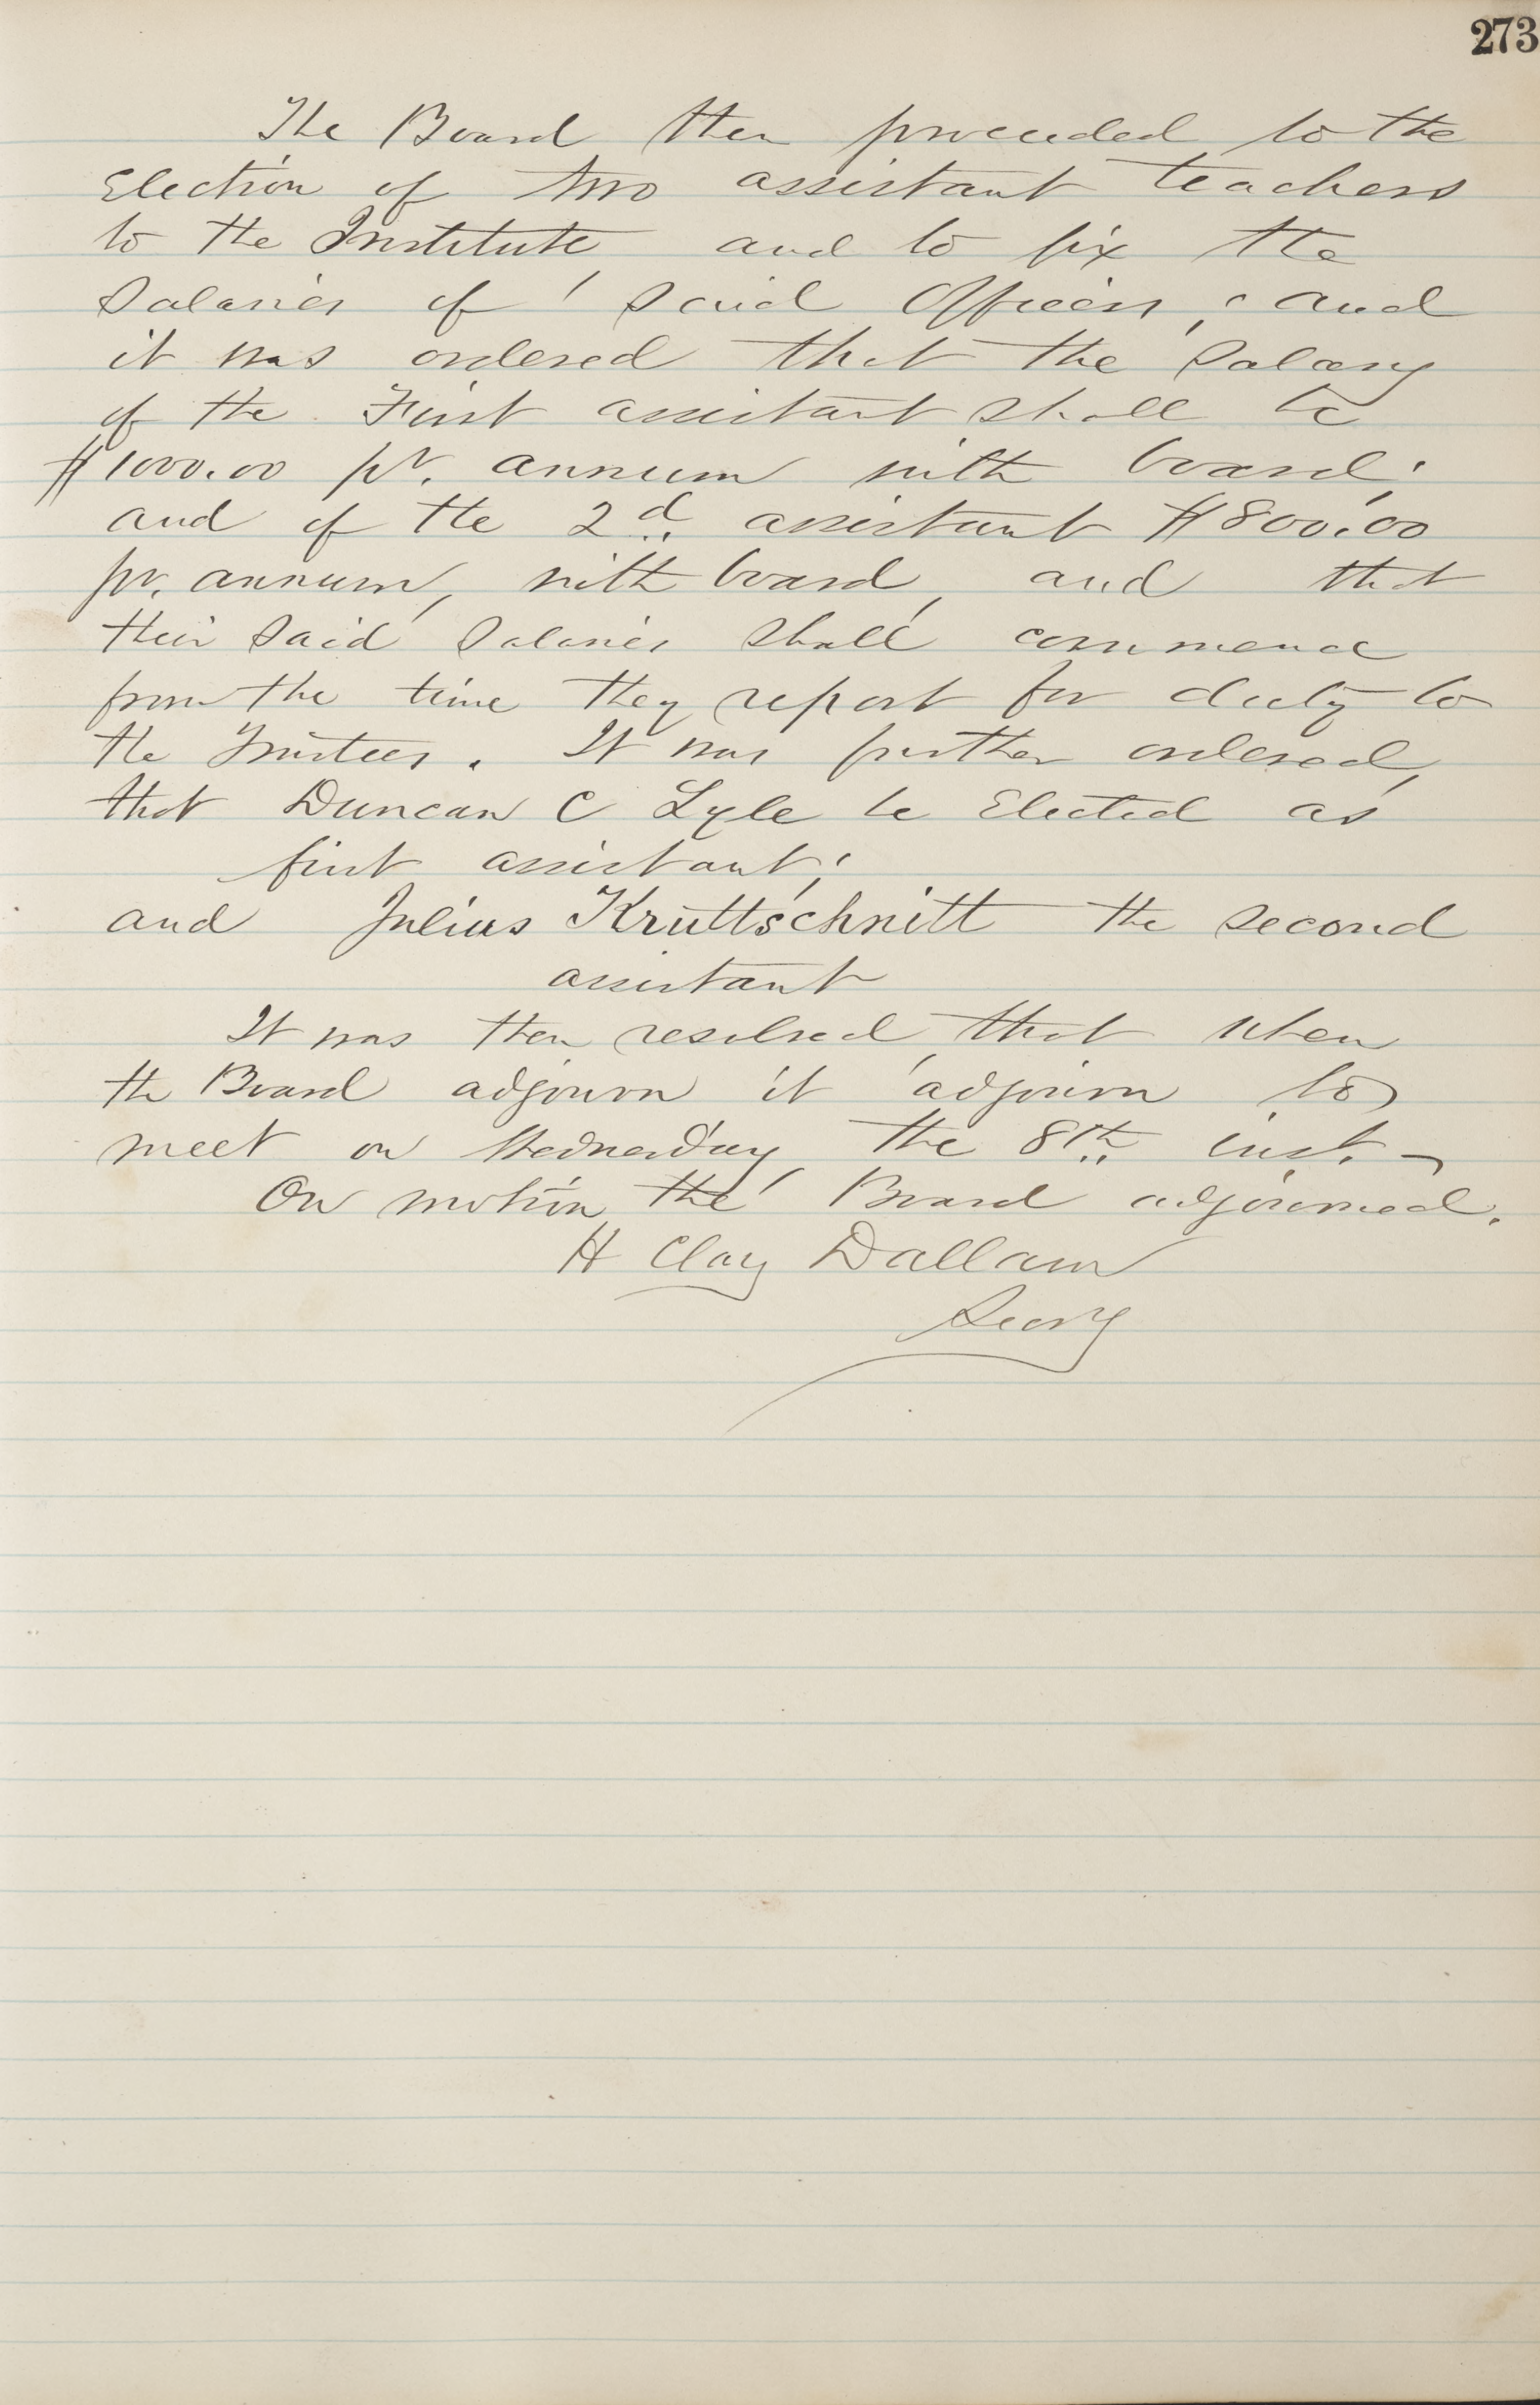 273
The Board then proceeded to the
Election of two assistant teachers
to the Institute and to fix the
Salaries of said Officers, and
it was ordered that the Salary
of the First assistant shall be
$1000.00 pr. annum with board;
and of the 2d. assistant $800.00
pr. annum, with board, and that
their said Salaries shall commence
from the time they report for duty to
the Trustees. It was further ordered,
that Duncan C Lyle be Elected as
first assistant;
and Julius Kruttschnitt the second
assistant
It was then resolved, that when
the Board adjourn it adjourn to
meet on Wednesday the 8th inst. -
On motion the Board adjourned.
H Clay Dallam
Secry